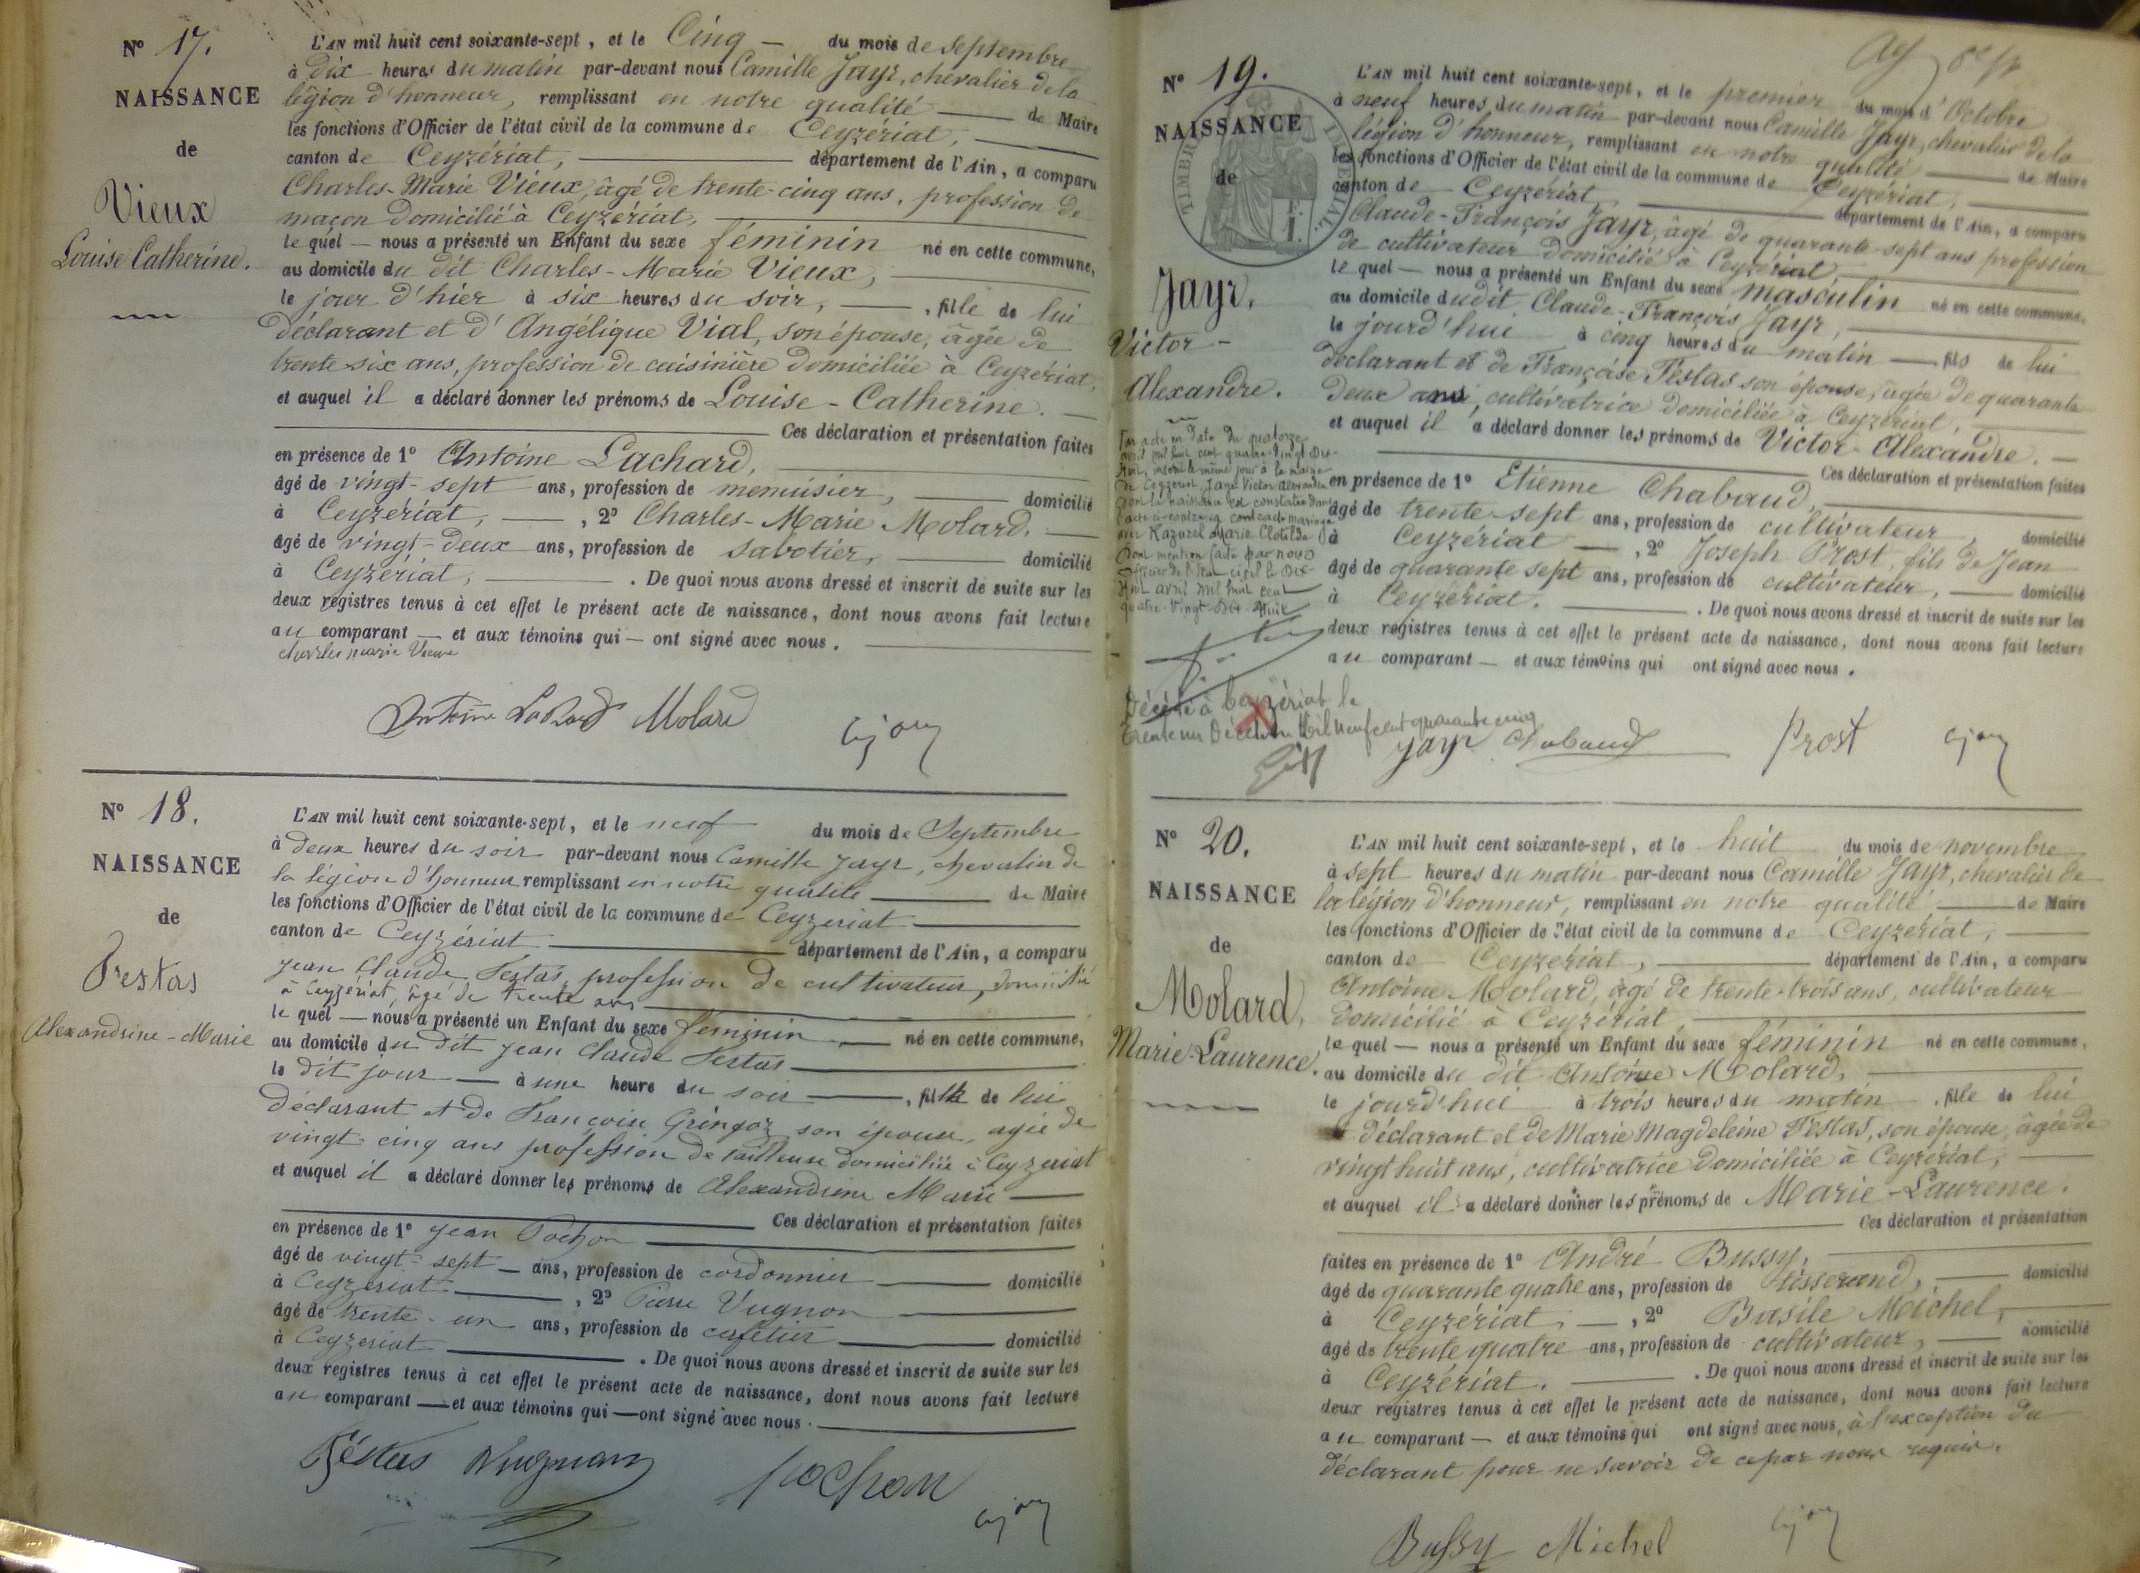 Nº 17.
NAISSANCE
de
Vieux
Louise-Catherine.
L'AN mil huit cent soixante-sept, et le Cinq — du mois de Septembre
à dix heures du matin par-devant nous Camille Jayr, chevalier de la
légion d'honneur, remplissant en notre qualité — de Maire
les fonctions d'Officier de l'état civil de la commune de Ceyzériat, —
canton de Ceyzériat, — département de l'Ain, a comparu
Charles-Marie Vieux, âgé de trente-cinq ans, profession de
maçon domicilié à Ceyzériat, —
le quel — nous a présenté un Enfant du sexe féminin né en cette commune,
au domicile du dit Charles-Marie Vieux, —
le jour d'hier à six heures du soir, —, fille de lui
déclarant et d'Angélique Vial, son épouse, âgée de
trente six ans, profession de cuisinière domiciliée à Ceyzériat,
et auquel il a déclaré donner les prénoms de Louise-Catherine. —
— Ces déclaration et présentation faites
en présence de 1º Antoine Lachard, —
âgé de vingt-sept ans, profession de menuisier, — domicilié
à Ceyzériat, —, 2º Charles-Marie Molard, —
âgé de vingt-deux ans, profession de sabotier, — domicilié
à Ceyzériat, —. De quoi nous avons dressé et inscrit de suite sur les
deux registres tenus à cet effet le présent acte de naissance, dont nous avons fait lecture
au comparant — et aux témoins qui — ont signé avec nous. —
charles marie Vieux
Antoine Lachard Molard
Nº 18.
NAISSANCE
de
Festas
Alexandrine-Marie
L'AN mil huit cent soixante-sept, et le neuf du mois de Septembre
à deux heures du soir par-devant nous Camille Jayr, chevalier de
la légion d'honneur remplissant en notre qualité — de Maire
les fonctions d'Officier de l'état civil de la commune de Ceyzeriat —
canton de Ceyzériat — département de l'Ain, a comparu
jean Claude Festas, profession de cultivateur, domicilié
à Ceyzériat, âgé de trente ans —
le quel — nous a présenté un Enfant du sexe féminin — né en cette commune,
au domicile du dit jean Claude Festas —
le dit jour — à une heure du soir —, fille de lui
déclarant et de Françoise Gringoz son épouse, agée de
vingt-cinq ans profession de tailleuse domiciliée à Ceyzeriat
et auquel il a déclaré donner les prénoms de Alexandrine Marie —
— Ces déclaration et présentation faites
en présence de 1º jean Pochon —
âgé de vingt-sept — ans, profession de cordonnier — domicilié
à Ceyzeriat —, 2º Pierre Vugnon —
âgé de trente-un ans, profession de cafetier — domicilié
à Ceyzeriat —. De quoi nous avons dressé et inscrit de suite sur les
deux registres tenus à cet effet le présent acte de naissance, dont nous avons fait lecture
au comparant — et aux témoins qui — ont signé avec nous. —
Festas Vugnon Pochon
Nº 19.
NAISSANCE
de
TIMBRE IMPÉRIAL
Jayr.
Victor-
Alexandre.
L'AN mil huit cent soixante-sept, et le premier du mois d'Octobre
à neuf heures du matin par-devant nous Camille Jayr, chevalier de la
légion d'honneur, remplissant en notre qualité — de Maire
les fonctions d'Officier de l'état civil de la commune de Ceyzériat, —
canton de Ceyzériat, — département de l'Ain, a comparu
Claude-François Jayr, âgé de quarante-sept ans profession
de cultivateur domicilié à Ceyzériat —
le quel — nous a présenté un Enfant du sexe masculin né en cette commune,
au domicile du dit Claude-François Jayr, —
le jourd'hui à cinq heures du matin —, fils de lui
déclarant et de Françoise Festas son épouse, âgée de quarante
deux ans, cultivatrice domiciliée à Ceyzériat, —
et auquel il a déclaré donner les prénoms de Victor-Alexandre. —
— Ces déclaration et présentation faites
en présence de 1º Etienne Chabaud, —
âgé de trente-sept ans, profession de cultivateur, domicilié
à Ceyzériat —, 2º Joseph Prost, fils de Jean
âgé de quarante sept ans, profession de cultivateur, — domicilié
à Ceyzériat. —. De quoi nous avons dressé et inscrit de suite sur les
deux registres tenus à cet effet le présent acte de naissance, dont nous avons fait lecture
au comparant — et aux témoins qui ont signé avec nous.
Par acte en date du quatorze
avril mil huit cent quatre-vingt dix-
huit, inscrit le même jour à la mairie
de Ceyzeriat, Jayr Victor Alexandre
dont la naissance est constatée dans
l'acte ci-contre a contracté mariage
avec Marie Clotilde
Dont mention faite par nous
officier de l'état civil le dix-
huit avril mil huit cent
quatre-vingt-dix-huit
Décédé à Ceyzériat le
trente un Décembre Mil neuf cent quarante cinq
Jayr Chabaud Prost
Nº 20.
NAISSANCE
de
Molard,
Marie-Laurence.
L'AN mil huit cent soixante-sept, et le huit du mois de novembre
à sept heures du matin par-devant nous Camille Jayr, chevalier de
la légion d'honneur, remplissant en notre qualité — de Maire
les fonctions d'Officier de l'état civil de la commune de Ceyzériat, —
canton de Ceyzériat, — département de l'Ain, a comparu
Antoine Molard, âgé de trente-trois ans, cultivateur
domicilié à Ceyzériat, —
le quel — nous a présenté un Enfant du sexe féminin né en cette commune,
au domicile du dit Antoine Molard, —
le jourd'hui à trois heures du matin, fille de lui
déclarant et de Marie Magdeleine Festas, son épouse, âgée de
vingt huit ans, cultivatrice domiciliée à Ceyzériat, —
et auquel il a déclaré donner les prénoms de Marie-Laurence.
— Ces déclaration et présentation
faites en présence de 1º André Bussy, —
âgé de quarante quatre ans, profession de tisserand, — domicilié
à Ceyzériat, —, 2º Basile Michel, —
âgé de trente quatre ans, profession de cultivateur, — domicilié
à Ceyzériat. —. De quoi nous avons dressé et inscrit de suite sur les
deux registres tenus à cet effet le présent acte de naissance, dont nous avons fait lecture
au comparant — et aux témoins qui ont signé avec nous, à l'exception du
déclarant pour ne savoir de ce par nous requis.
Bussy Michel